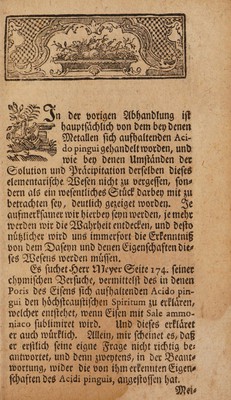 In der vorigen Abhandlung ist
hauptsächlich von dem bey denen
Metallen sich aufhaltenden Aci-
do pingui gehandelt worden, und
wie bey denen Umständen der
Solution und Präcipitation derselben dieses
elementarische Wesen nicht zu vergessen, son-
dern als ein wesentliches Stück darbey mit zu
betrachten sey, deutlich gezeiget worden. Je
aufmerksamer wir hierbey seyn werden, je mehr
werden wir die Wahrheit entdecken, und desto
nützlicher wird uns immerfort die Erkenntniß
von dem Daseyn und denen Eigenschaften die-
ses Wesens werden müssen.
Es suchet Herr Meyer Seite 174. seiner
chymischen Versuche, vermittelst des in denen
Poris des Eisens sich aufhaltenden Acido pin-
gui den höchstcaustischen Spiritum zu erklären,
welcher entstehet, wenn Eisen mit Sale ammo-
niaco sublimiret wird. Und dieses erkläret
er auch würklich. Allein, mir scheinet es, daß
er erstlich seine eigne Frage nicht richtig be-
antwortet, und denn zweytens, in der Beant-
wortung, wider die von ihm erkennten Eigen-
schaften des Acidi pinguis, angestoßen hat.
Mei-